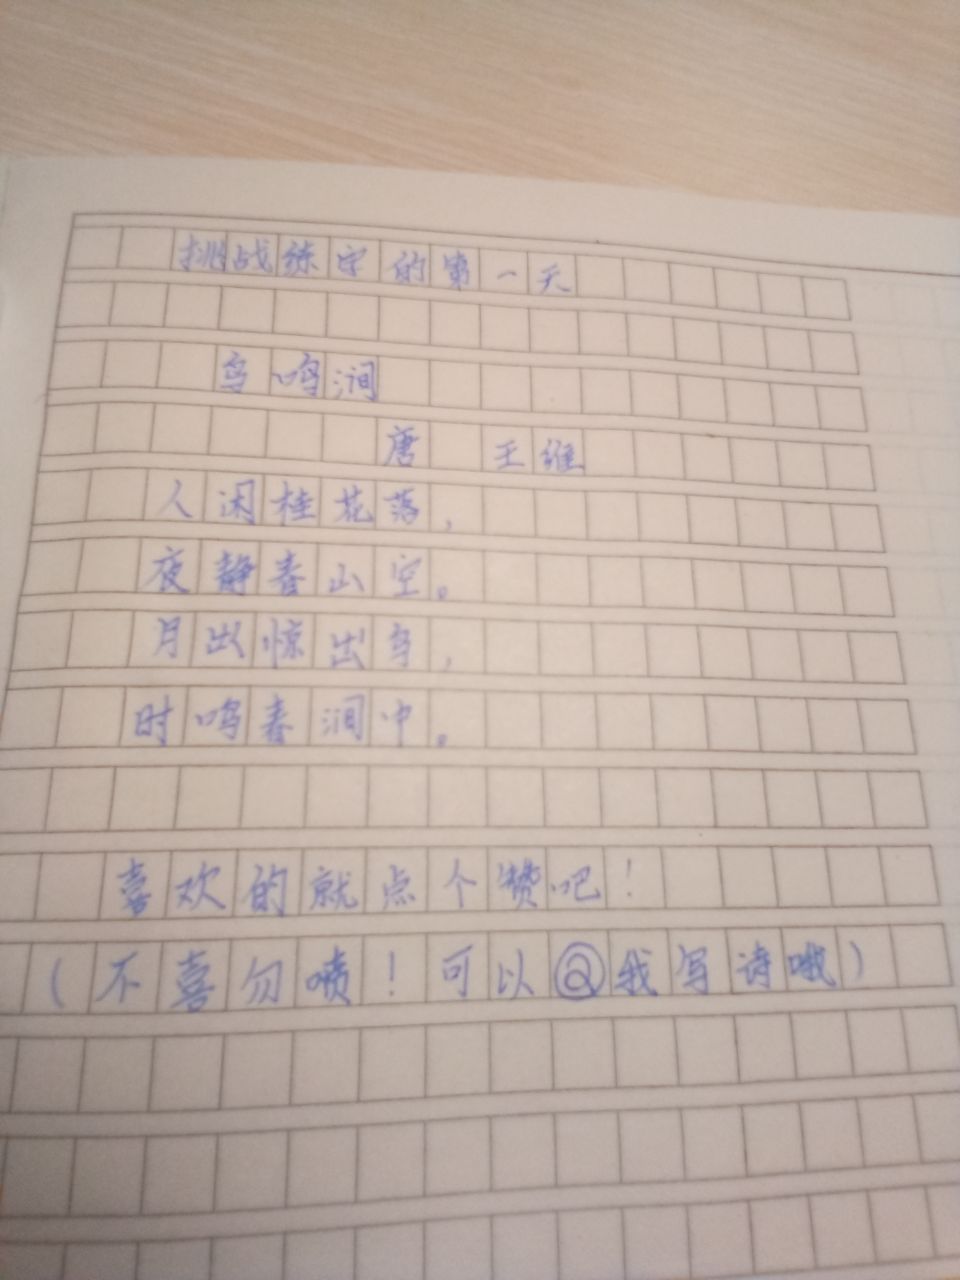 挑战练字的第一天
鸟鸣涧
唐 王维
人闲桂花落，
夜静春山空。
月出惊出鸟，
时鸣春涧中。
喜欢的就点个赞吧！
（不喜勿喷！可以@我写诗哦）